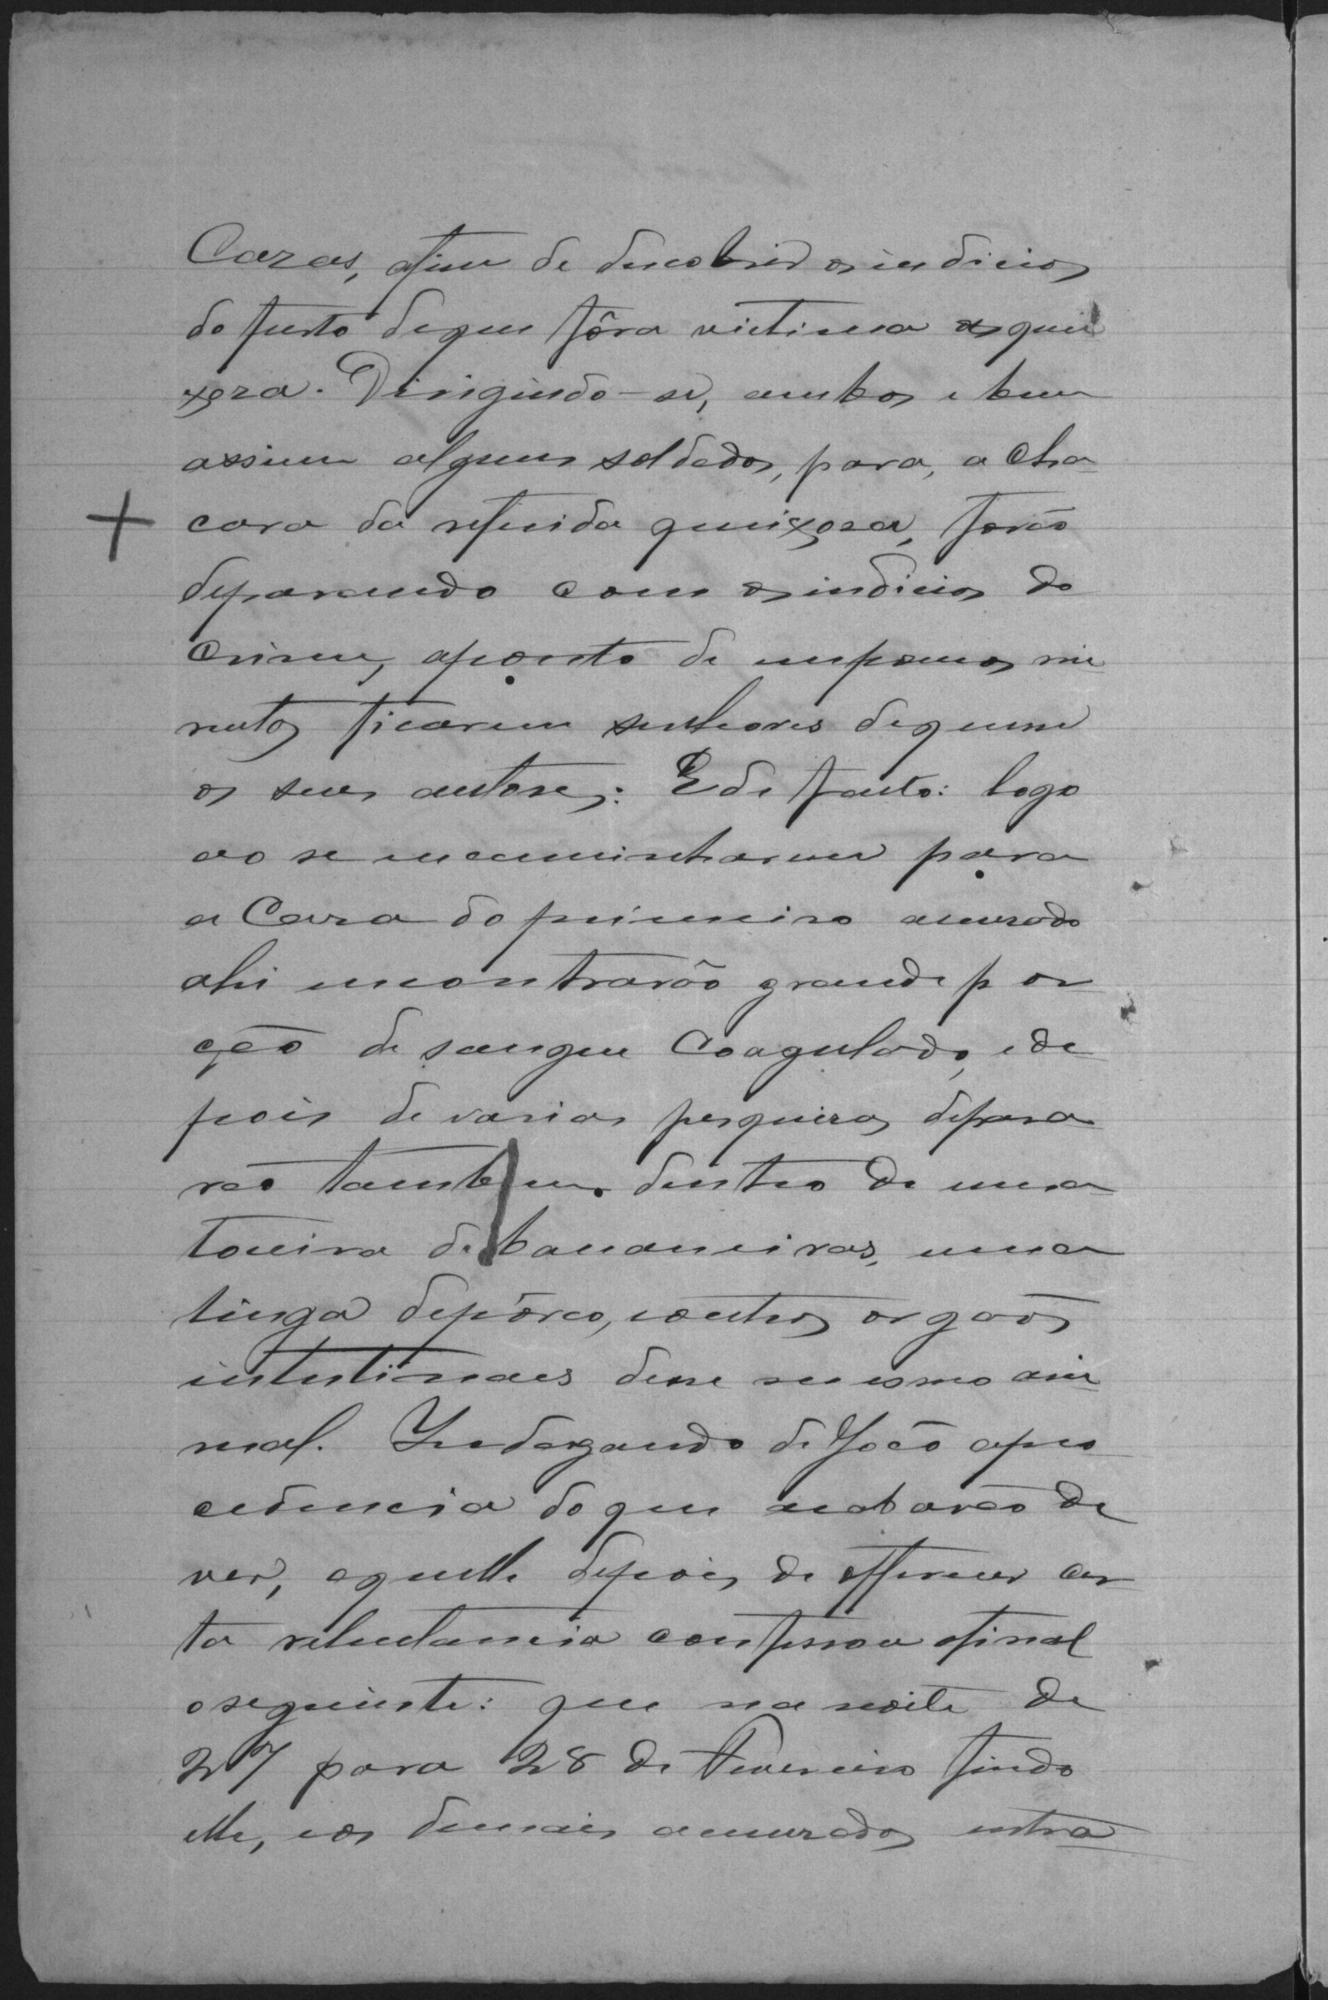 Cazas, afim de descobrir os indicios
do furto de que fôra victima a quei
xoza. Dirigindo-se, ambos e bem
assim alguns soldados, para, a Cha
cara da referida queixosa, forão
deparando com os indicios do
Crime, aponto de em poucos mi
nutos ficarem senhores de quem
os seus autores: E de facto: logo
ao se incaminharem para
a Caza do primeiro accusado
ahi encontrarão grande por
ção de sangue Coagulado, e de
pois de varias pesquizas depara
rão tambem dentro de uma
toceira de bananeiras, uma
lingoa de pôrco, e outros orgãos
intestinaes desse mesmo ani
mal. Indagando de João a pro
cedencia do que acabarão de
ver, aquelle depois de offerecer cer
ta reluctancia confessou afinal
o seguinte: que na noite de
27 para 28 de Fevereiro findo
elle, e os demais accusados entra